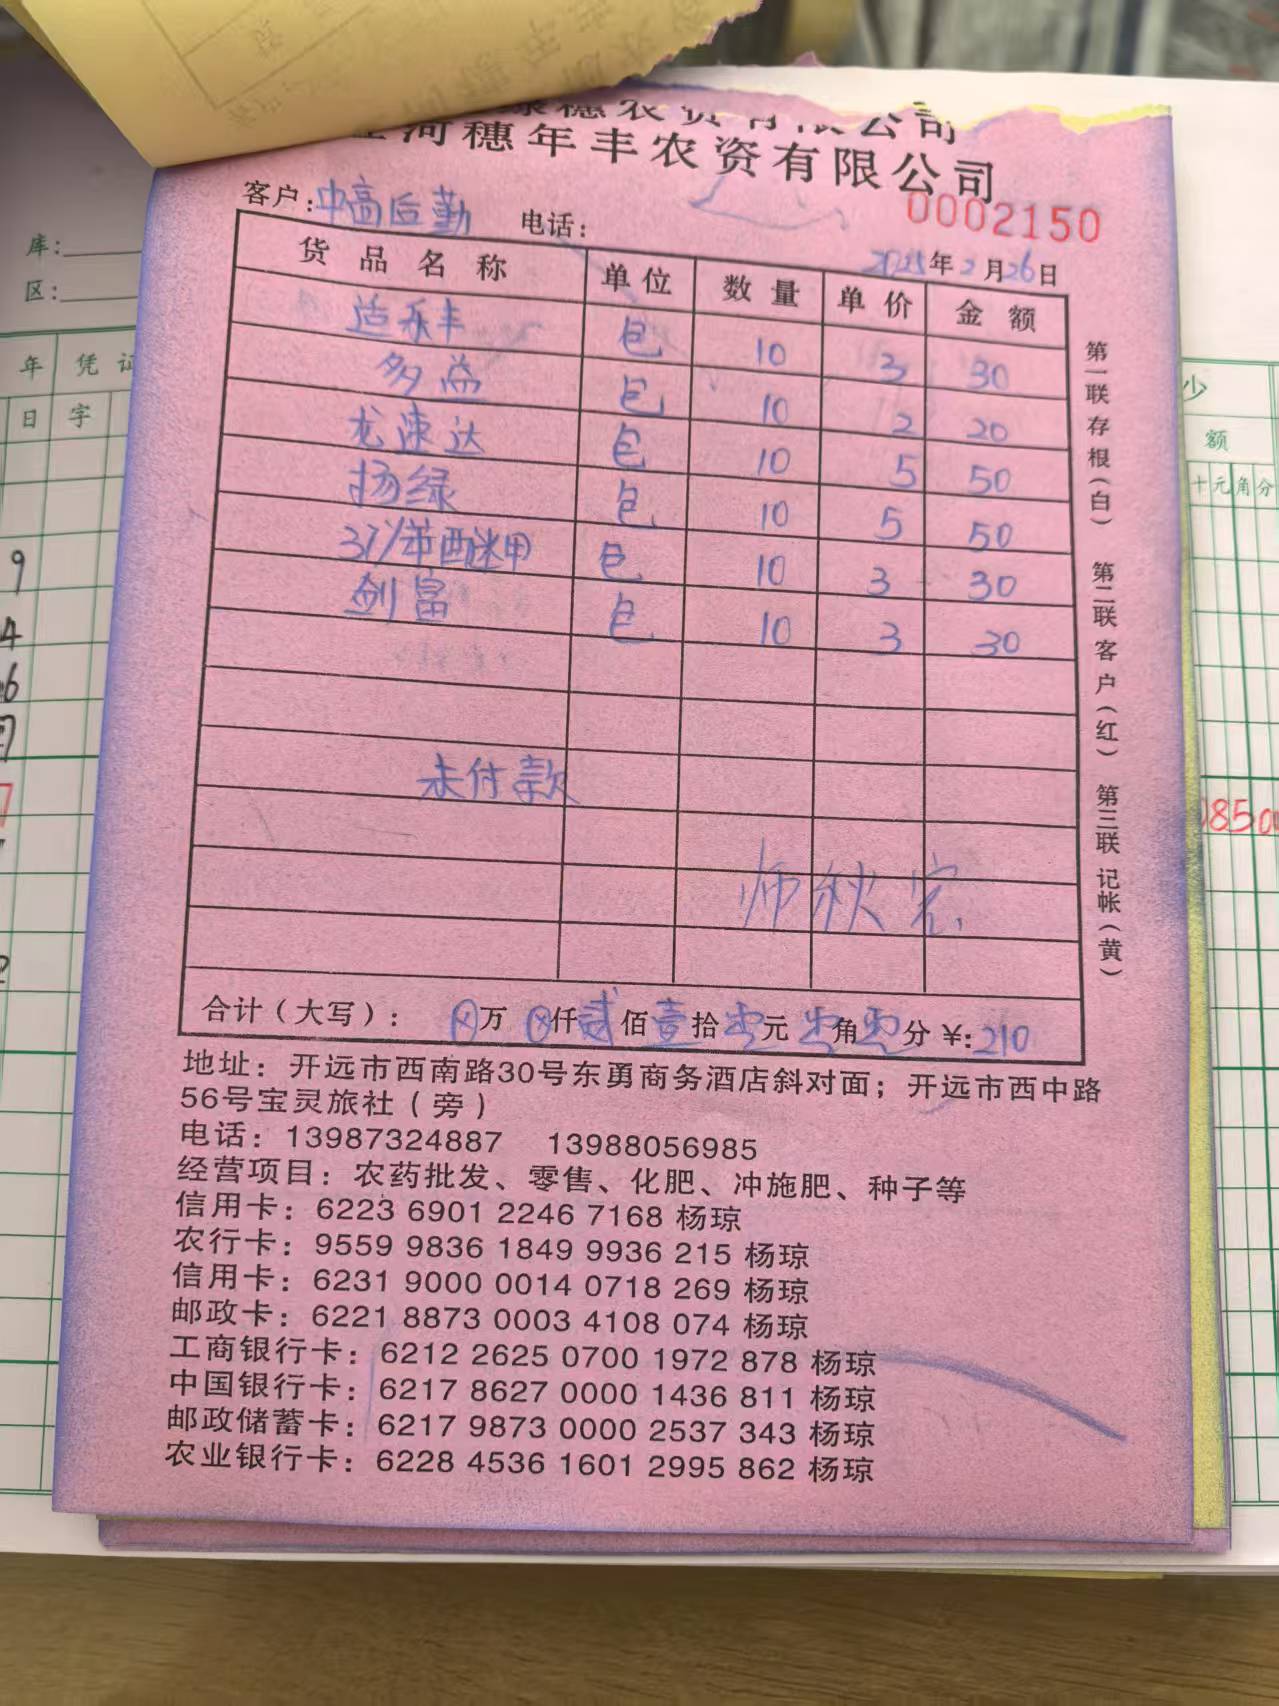 穗农资有限公司
河穗年丰农资有限公司
0002150
客户：中高后勤 电话：
2025年2月26日
货品名称 单位 数量 单价 金额
适乐丰 包 10 3 30
多益 包 10 2 20
龙速达 包 10 5 50
扬绿 包 10 5 50
37%苯醚甲 包 10 3 30
剑富 包 10 3 30
未付款
师秋宏
合计（大写）： ⊗万 ⊗仟贰佰壹拾零元零角零分 ￥:210
第一联存根（白） 第二联客户（红） 第三联记帐（黄）
地址：开远市西南路30号东勇商务酒店斜对面；开远市西中路
56号宝灵旅社（旁）
电话：13987324887 13988056985
经营项目：农药批发、零售、化肥、冲施肥、种子等
信用卡：6223 6901 2246 7168 杨琼
农行卡：9559 9836 1849 9936 215 杨琼
信用卡：6231 9000 0014 0718 269 杨琼
邮政卡：6221 8873 0003 4108 074 杨琼
工商银行卡：6212 2625 0700 1972 878 杨琼
中国银行卡：6217 8627 0000 1436 811 杨琼
邮政储蓄卡：6217 9873 0000 2537 343 杨琼
农业银行卡：6228 4536 1601 2995 862 杨琼
库：
区：
年 凭证
日 字
9
4
6
7
2
少
额
十元角分
8500